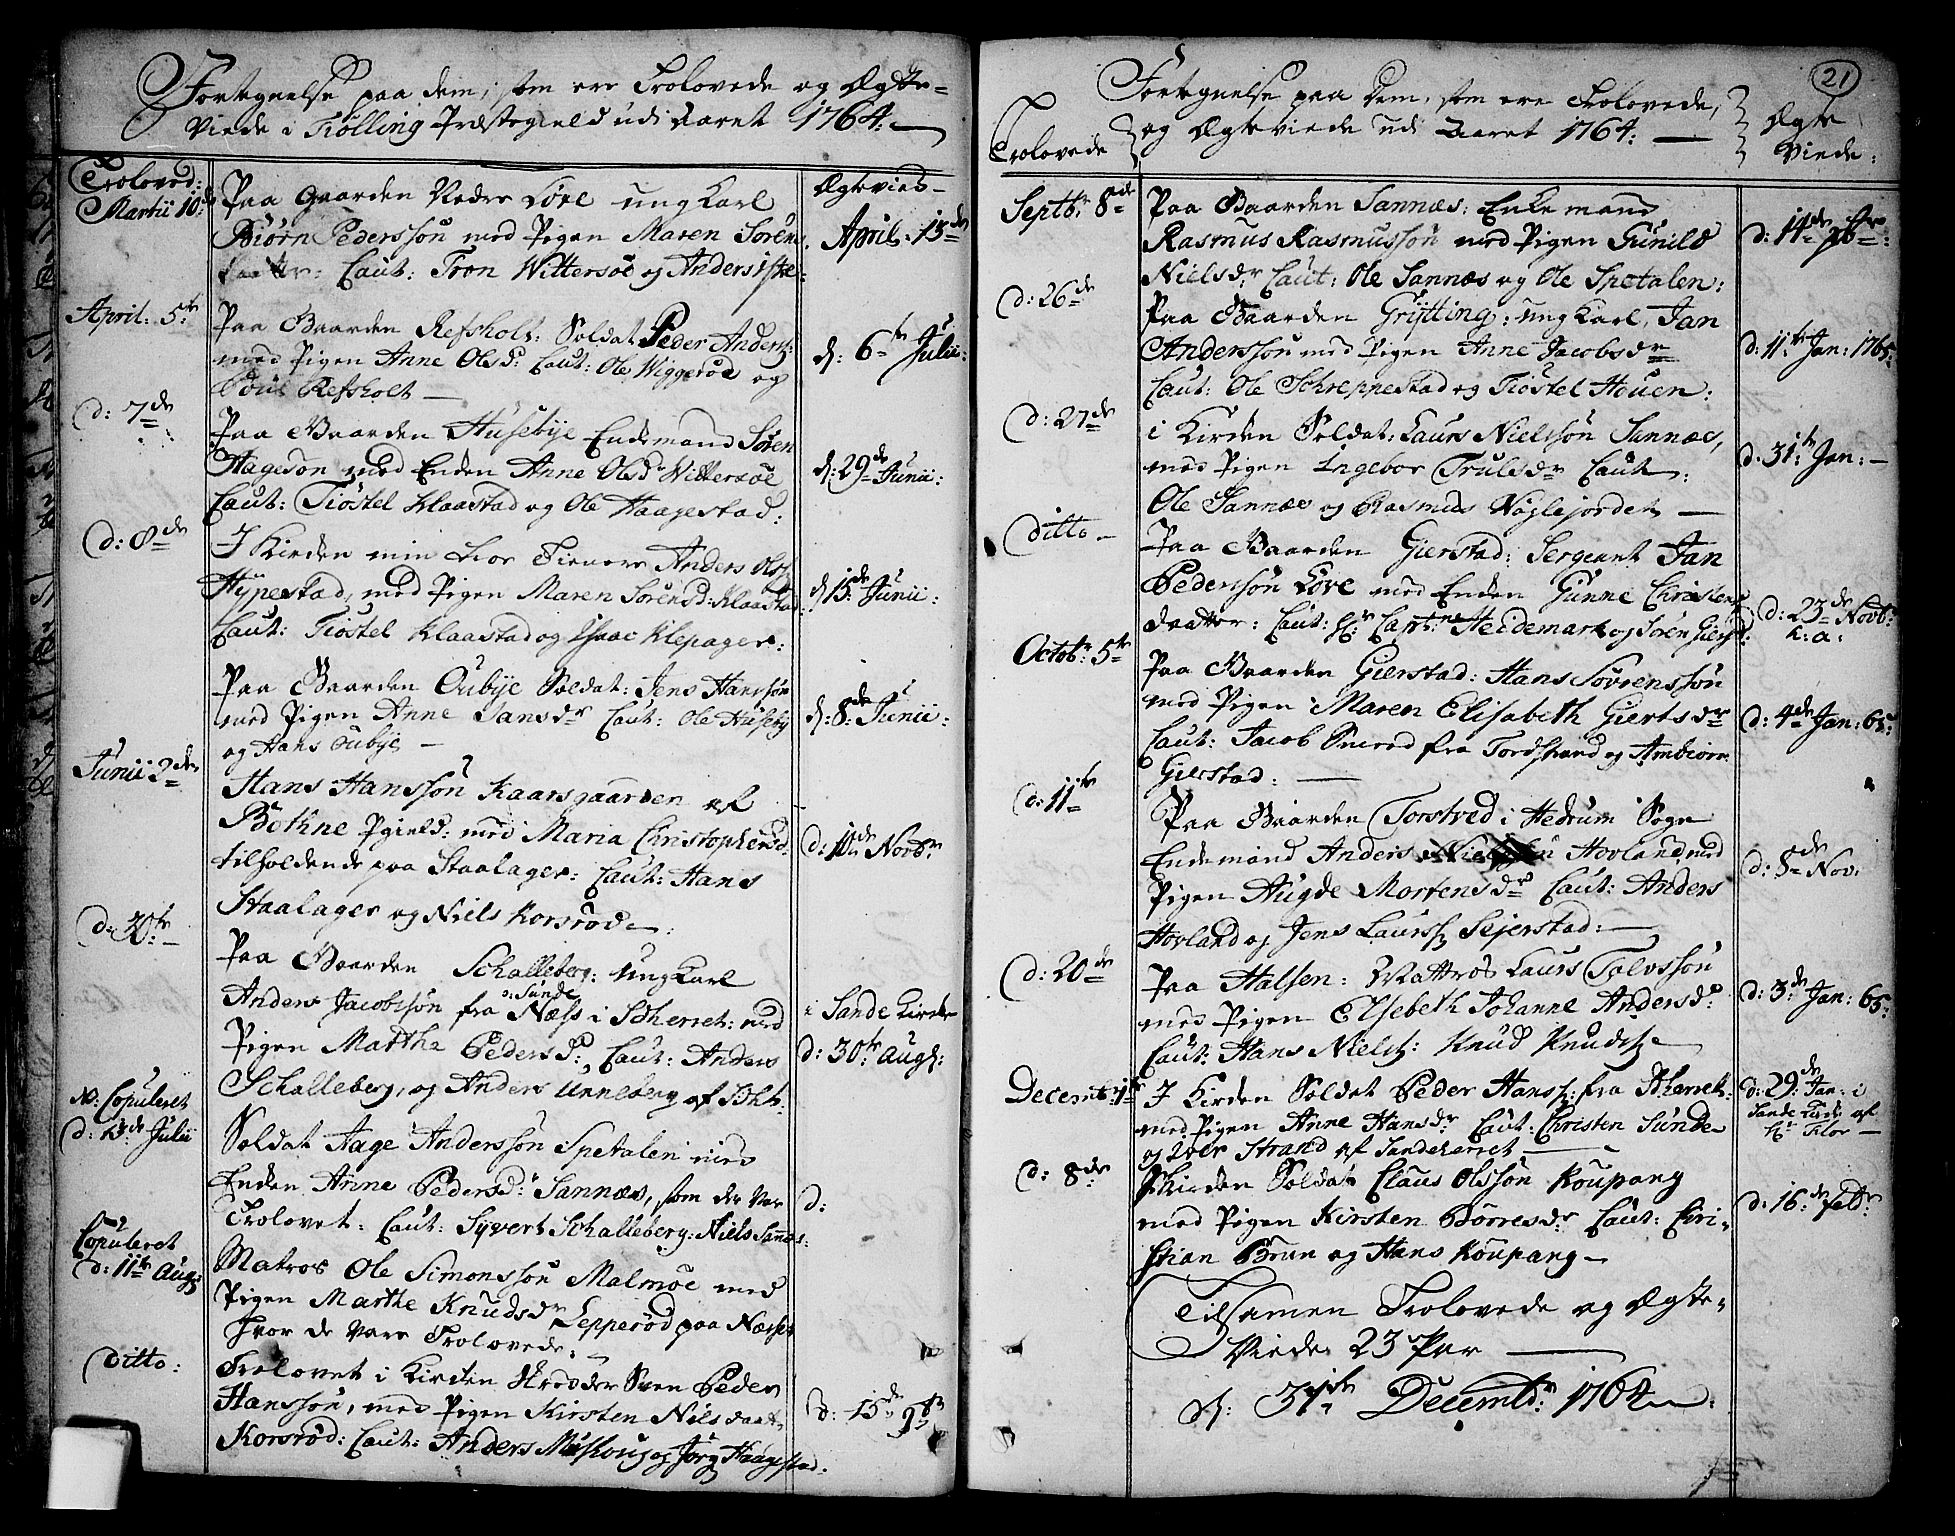 Fortegnelse paa dem, som ere Trolovede og Ægte-
Viede i Tiølling Præstegield udi Aaret 1764.
Troloved:
Ægtevied
Martii 10de
Paa Gaarden Nedre Løve ung Karl
Biørn Pederssøn med Pigen Maren Søren
daatter: Caut: Tron Wittersøe og Anders
April: 15de
April: 5te
Paa Gaarden Refsholt: Soldat Peder Anders:
med Pigen Anne Olsdr Caut: Ole Wiggersøe og
Poul Refsholt
d: 6te Julii:
d: 7de
Paa Gaarden Husebÿe Enckemand Søren
Hagesøn med Encken Anne Olsdr Wittersøe
Caut: Tiøstel Klaastad og Ole Haagestad:
d: 29de Junii:
d: 8de
I Kircken min Tienere Anders Ols:
Hÿpestad, med Pigen Maren Sørensd: Klaastad
Caut: Tiøstel Klaastad og Isaac Klepager:
d: 15de Junii:
Paa Gaarden Oubÿe Soldat: Jens Hanssøn
med Pigen Anne Jansdr Caut: Ole Husebÿ
og Hans Oubÿe
d: 8de Junii:
Junii 2den
Hans Hanssøn Kaarsgaarden af
Bothne Pgield: med Maria Christophersd:
tilholdende paa Staalager: Caut: Hans
Staalager og Niels Korsrød
d: 10de Novbr
d: 20te
Paa Gaarden Schalleberg: Ung Karl
Anders Jacobssøn fra Næss i Sthierret: med
o: Sunde
Pigen Marthe Pedersdr, Caut: Anders
Schalleberg, og Anders Unneberg af Stht.
i Sande Kircke
d: 30te Aug:
N: Copuleret
d: 13de Julii
Soldat Aage Anderssøn Spetalen med
Encken Anne Pedersdr Sannæs, som der var
Trolovet: Caut: Syvert Schalleberg: Niels Sannæs:
d:
Copuleret
d: 11te Aug:
Matros Ole Simonssøn Malmøe med
Pigen Marthe Knudsdr Lepperød paa Næsset
hvor de vare Trolovede.
ditto:
Trolovet i Kircken Skrædder Sven Peder
Hanssøn, med Pigen Kirsten Nilsdaat:
Korsrød: Caut: Anders Muskoug og Jørg Haagestad.
d: 15de 9br
21
Trolovede
Fortegnelse paa Dem, som ere Trolovede,
og Ægteviede udi Aaret 1764:
Ægte
Viede:
Septbr 8de
Paa Gaarden Sannæs: Enkemand
Rasmus Rasmussøn med Pigen Gunild
Nielsdr Caut: Ole Sannæs og Ole Spetalen:
d: 14de Xbr:
d: 26de
Paa Gaarden Grÿtting: ung Karl, Jan
Anderssøn med Pigen Anne Jacobsdr
Caut: Ole Schreppestad og Tiøstel Houen:
d: 11te Jan: 1765
d: 27de
i Kircken Soldat: Laurs Nielssøn Sannæs,
med Pigen Ingebor Trulsdr Caut:
Ole Sannæs og Rasmus Nøglejordet
d. 31te Jan:
ditto
Paa Gaarden Gierstad: Sergeant Jan
Pederssøn Løve med Encken Gunne Christens
daatter: Caut: Hr Captne Heidemark og Søren Gierst:
d: 23de Novbr
h: a:
Octobr: 5te
Paa Gaarden Gierstad: Hans Sörenssøn
med Pigen Maren Elisabeth Giertsdr
Caut: Jacob Smerød fra Tordstrand og Ambiørn
Gierstad:
d: 4de Jan: 65
d: 11te
Paa Gaarden Torstved i Hedrum Sogn
Enckemand Anders Nielssøn Hovland, med
Pigen Augde Mortensdr Caut: Anders
Hovland og Jens Laurss: Sejerstad:
d: 8de Nov.
d: 20de
Paa Halsen: Mattros Laurs Talvssøn
med Pigen Elsebeth Johanne Andersdr
Caut: Hans Nielss: Knud Knuds:
d: 3de Jan: 65
Decembr: 1te
I Kircken Soldat Peder Hanss: fra Stherret
med Pigen Anne Hansdr Caut: Christen Sunde
og Iver Strand af Sandeherret
d: 29de Jan: i
Sande Kircke af
Hr Filor
d: 8de
I Kircken Soldat Claus Olssøn Koupang
med Pigen Kirsten Børresdr Caut: Chri-
stian Brun og Hans Koupang
d: 16de Febr:
Tilsamen Trolovede og Ægte-
Viede 23 Par
d: 31te Decembr: 1764